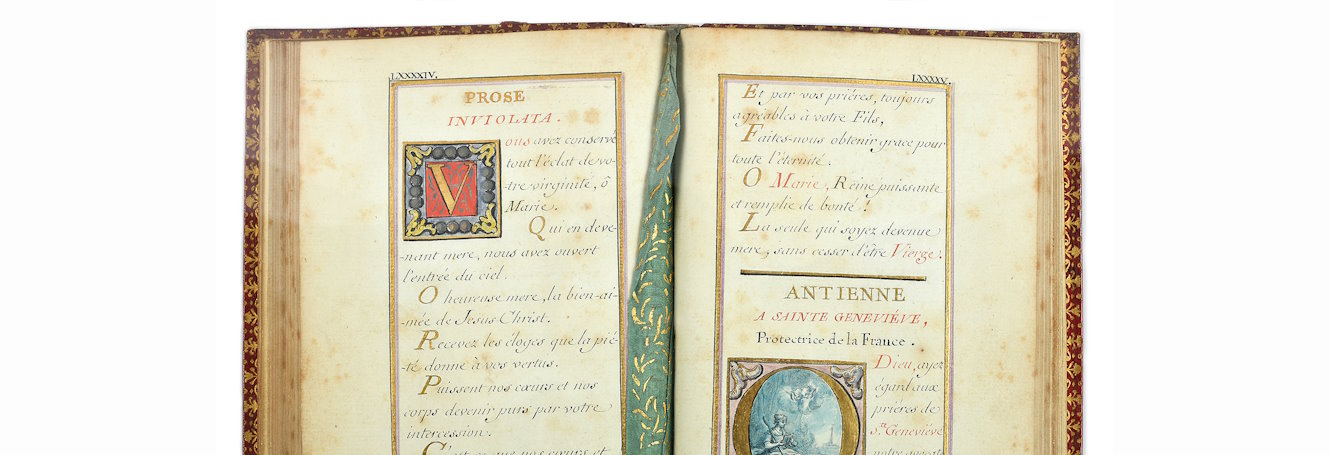 LXXXXIV.
PROSE
INVIOLATA.
Vous avez conservé
tout l'éclat de vo-
-tre virginité, ô
Marie.
Qui en deve-
-nant mere, nous avez ouvert
l'entrée du ciel.
O heureuse mere, la bien-ai-
-mée de Jesus Christ.
Recevez les éloges que la pié-
-té donne à vos vertus.
Puissent nos cœurs et nos
corps devenir purs par votre
intercession.
C'est ce que nos cœurs et
LXXXXV.
Et par vos priéres, toujours
agréables à votre Fils,
Faites-nous obtenir grace pour
toute l'éternité.
O Marie, Reine puissante
et remplie de bonté!
La seule qui soyez devenue
mere, sans cesser d'être Vierge.
ANTIENNE
A SAINTE GENEVIÉVE,
Protectrice de la France.
O
Dieu, ayez
égard aux
priéres de
S.te Geneviéve
notre avocate